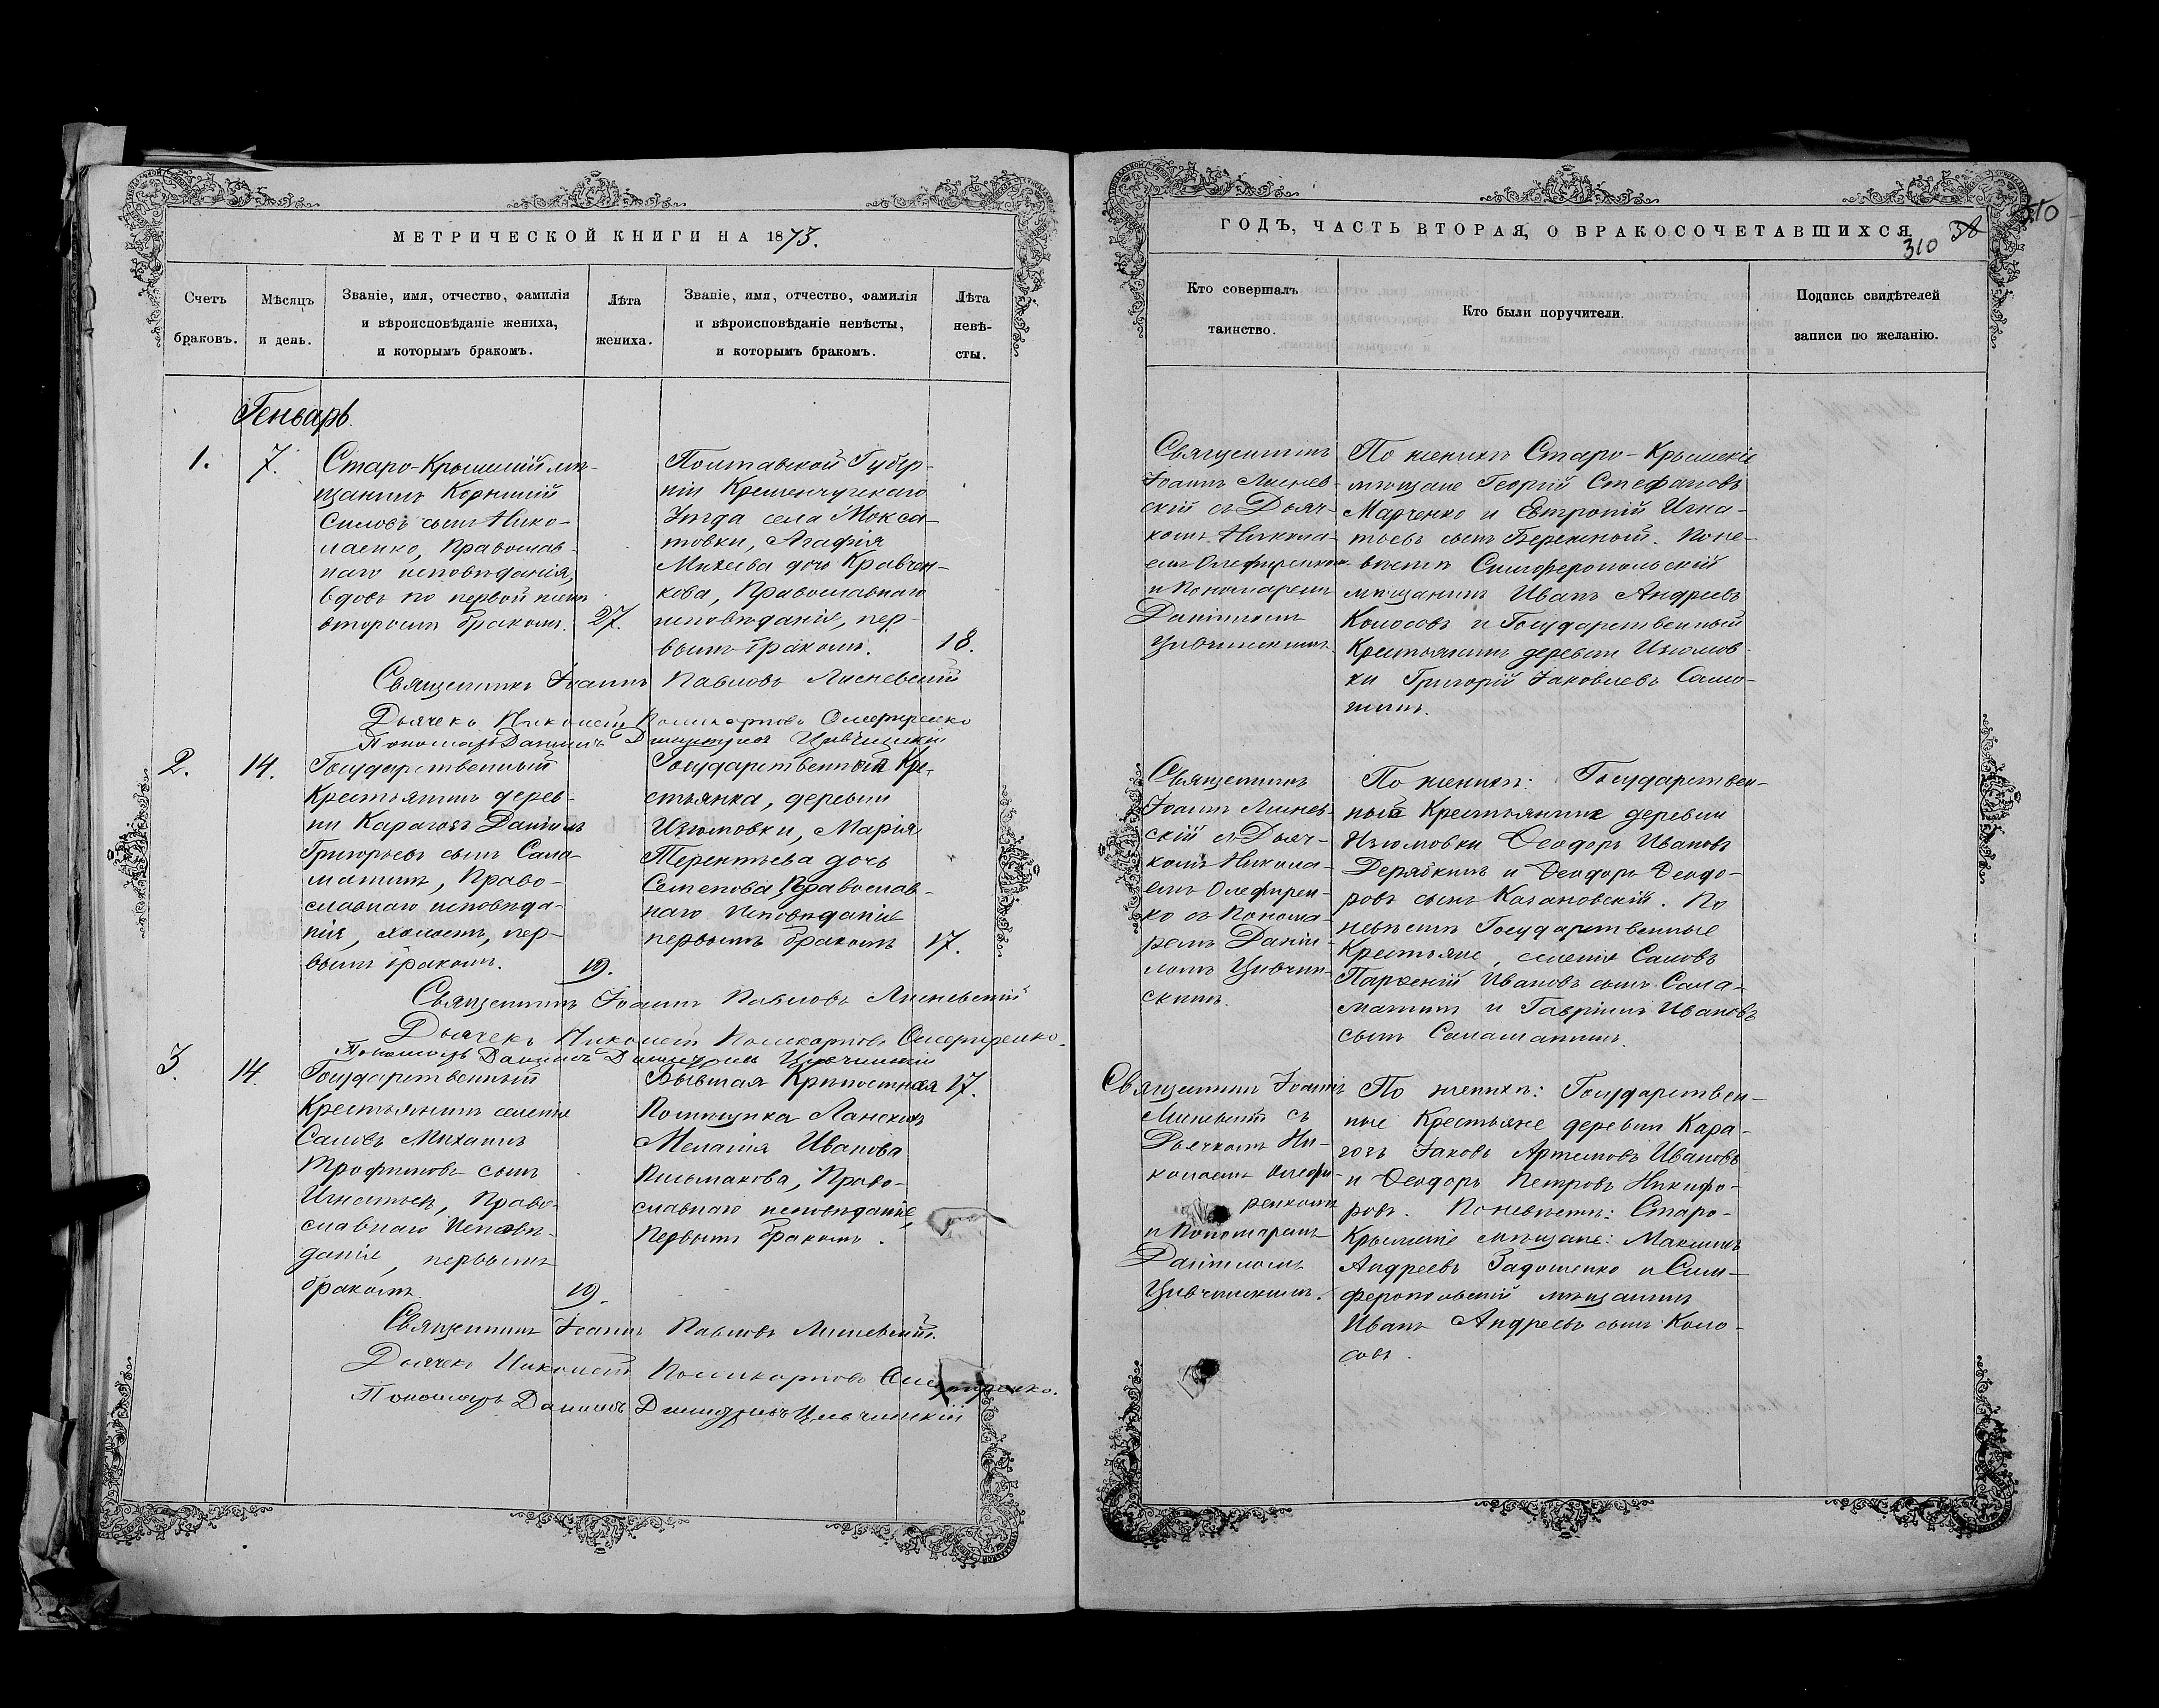 МЕТРИЧЕСКОЙ КНИГИ НА 1873.
Счетъ
браковъ.
Мѣсяцъ
и день.
Званіе, имя, отчество, фамилія
и вѣроисповѣданіе жениха,
и которымъ бракомъ.
Лѣта
жениха.
Званіе, имя, отчество, фамилія
и вѣроисповѣданіе невѣсты,
и которымъ бракомъ.
Лѣта
невѣ-
сты.
Геньварь.
1.
7.
Старо-Крымскій мѣ-
щанинъ Корнилій
Симовъ сынъ Нико-
лаенко, Православ-
наго исповѣданія,
вдовъ по первой женѣ
вторымъ бракомъ.
27.
Полтавской Губер-
ніи Кременчугскаго
Уѣзда села Мокса-
товки, Агафія
Михеева дочь Кравчен-
кова, Православнаго
исповѣданія, пер-
вымъ бракомъ.
18.
Священникъ Іоаннъ Павловъ Лисневскій
Дьячекъ Николай Поликарповъ Олефиренко
Пономарь Даніилъ Димитріевъ Цивчинскій
2.
14.
Государственный
Крестьянинъ дерев-
ни Карагозъ Даніилъ
Григорьевъ сынъ Сала-
матинъ, Право-
славнаго исповѣда-
нія, холостъ, пер-
вымъ бракомъ.
19.
Государственная Кре-
стьянка, деревни
Изюмовки, Марія
Терентьева дочь
Семенова, Православ-
наго исповѣданія
первымъ бракомъ
17.
Священникъ Іоаннъ Павловъ Лисневскій
Дьячекъ Николай Поликарповъ Олефиренко.
Пономарь Даніилъ Димитріевъ Цивчинскій
3.
14.
Государственный
Крестьянинъ селенія
Саловъ Михаилъ
Трофимовъ сынъ
Игнатьевъ, Право-
славнаго Исповѣ-
данія, первымъ
бракомъ.
19.
Бывшая Крѣпостная
Помѣщика Ланскихъ
Меланія Иванова
Письмакова, Право-
славнаго исповѣданія,
Первымъ бракомъ.
17.
Священникъ Іоаннъ Павловъ Лисневскій.
Дьячекъ Николай Поликарповъ Олефиренко.
Пономарь Даніилъ Димитріевъ Цивчинскій
ГОДЪ, ЧАСТЬ ВТОРАЯ, О БРАКОСОЧЕТАВШИХСЯ
310
38
310
Кто совершалъ
таинство.
Кто были поручители.
Подпись свидѣтелей
записи по желанію.
Священникъ
Іоаннъ Лиснев-
скій съ Дьяч-
комъ Никола-
емъ Олефиренкомъ
и Пономаремъ
Даніиломъ
Цивчинскимъ.
По женихѣ Старо-Крымскіе
мѣщане Георгій Стефановъ
Марченко и Евтропій Игна-
тьевъ сынъ Бережный. По не-
вѣстѣ Симферопольскій
мѣщанинъ Иванъ Андреевъ
Колосовъ и Государственный
Крестьянинъ деревни Изюмов-
ки Григорій Іаковлевъ Само-
Священникъ
Іоаннъ Лиснев-
скій съ Дьяч-
комъ Никола-
емъ Олефирен-
ко съ Понома-
ремъ Даніи-
ломъ Цивчин-
скимъ.
По женихѣ: Государствен-
ный Крестьянинъ деревни
Изюмовки Ѳеодоръ Ивановъ
Дерябкинъ и Ѳеодоръ Ѳеодо-
ровъ сынъ Казановскій. По
невѣстѣ Государственные
Крестьяне, селенія Саловъ
Парѳеній Ивановъ сынъ Сала-
матинъ и Гавріилъ Ивановъ
сынъ Саламатинъ.
Священникъ Іоаннъ
Лисневскій съ
Дьячкомъ Ни-
колаемъ Олефи-
ренкомъ
и Пономаремъ
Даніиломъ
Цивчинскимъ.
По женихѣ: Государствен-
ные Крестьяне деревни Кара-
гозъ Іаковъ Артемовъ Ивановъ
и Ѳеодоръ Петровъ Никифо-
ровъ. По невѣстѣ: Старо-
Крымскіе мѣщане: Максимъ
Андреевъ Задоенко и Сим-
феропольскій мѣщанинъ
Иванъ Андреевъ сынъ Коло-
совъ.